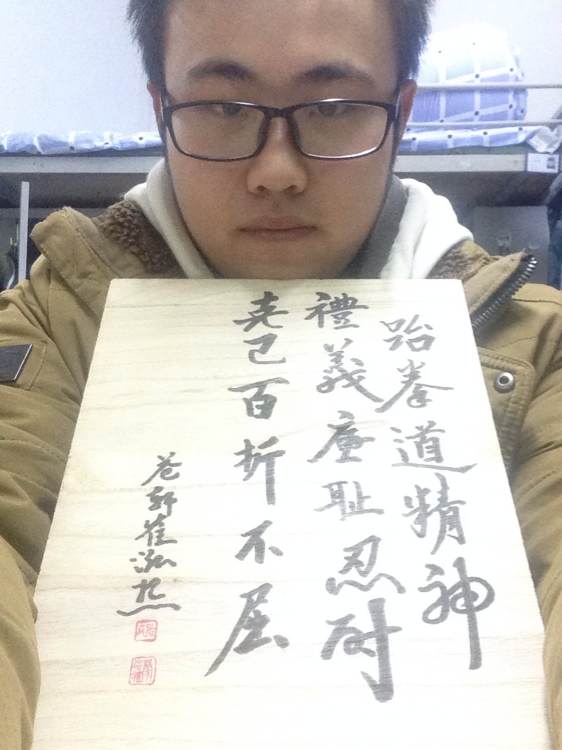 跆拳道精神
禮義廉耻忍耐
克己百折不屈
崔泓熙